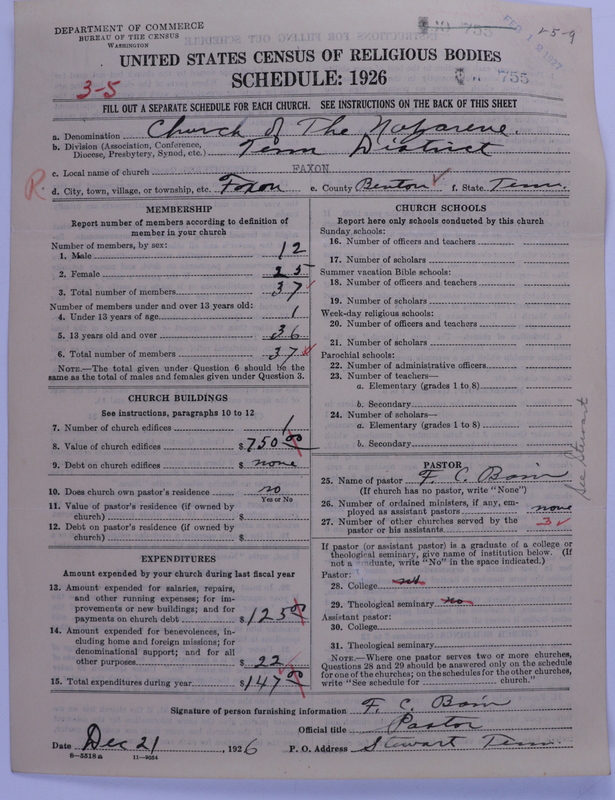 DEPARTMENT OF COMMERCE
BUREAU OF THE CENSUS
WASHINGTON
755
FEB 12 1927
1-5-9
UNITED STATES CENSUS OF RELIGIOUS BODIES
SCHEDULE: 1926
755
3-5
FILL OUT A SEPARATE SCHEDULE FOR EACH CHURCH. SEE INSTRUCTIONS ON THE BACK OF THIS SHEET
a. Denomination Church of The Nazarene.
b. Division (Association, Conference, Diocese, Presbytery, Synod, etc.) Tenn District
c. Local name of church FAXON
R.
d. City, town, village, or township, etc. Faxon e. County Benton f. State Tenn.
MEMBERSHIP
Report number of members according to definition of member in your church
Number of members, by sex:
1. Male 12
2. Female 25
3. Total number of members 37
Number of members under and over 13 years old:
4. Under 13 years of age 1
5. 13 years old and over 36
6. Total number of members 37
NOTE.—The total given under Question 6 should be the same as the total of males and females given under Question 3.
CHURCH BUILDINGS
See instructions, paragraphs 10 to 12
7. Number of church edifices 1
8. Value of church edifices $750 00
9. Debt on church edifices $ none
10. Does church own pastor's residence no
Yes or No
11. Value of pastor's residence (if owned by church) $
12. Debt on pastor's residence (if owned by church) $
EXPENDITURES
Amount expended by your church during last fiscal year
13. Amount expended for salaries, repairs, and other running expenses; for improvements or new buildings; and for payments on church debt $125 00
14. Amount expended for benevolences, including home and foreign missions; for denominational support; and for all other purposes $22
15. Total expenditures during year $147 00
CHURCH SCHOOLS
Report here only schools conducted by this church
Sunday schools:
16. Number of officers and teachers
17. Number of scholars
Summer vacation Bible schools:
18. Number of officers and teachers
19. Number of scholars
Week-day religious schools:
20. Number of officers and teachers
21. Number of scholars
Parochial schools:
22. Number of administrative officers
23. Number of teachers—
a. Elementary (grades 1 to 8)
b. Secondary
24. Number of scholars—
a. Elementary (grades 1 to 8)
b. Secondary
See Stewart
PASTOR
25. Name of pastor F. C. Bain
(If church has no pastor, write "None")
26. Number of ordained ministers, if any, employed as assistant pastors none
27. Number of other churches served by the pastor or his assistants 3
If pastor (or assistant pastor) is a graduate of a college or theological seminary, give name of institution below. (If not a graduate, write "No" in the space indicated.)
Pastor:
28. College
29. Theological seminary no
Assistant pastor:
30. College
31. Theological seminary
NOTE.—Where one pastor serves two or more churches, Questions 28 and 29 should be answered only on the schedule for one of the churches; on the schedules for the other churches, write "See schedule for church."
Signature of person furnishing information F. C. Bain
Official title Pastor
Date Dec 21, 1926 P. O. Address Stewart Tenn.
8-5518a 11-9034